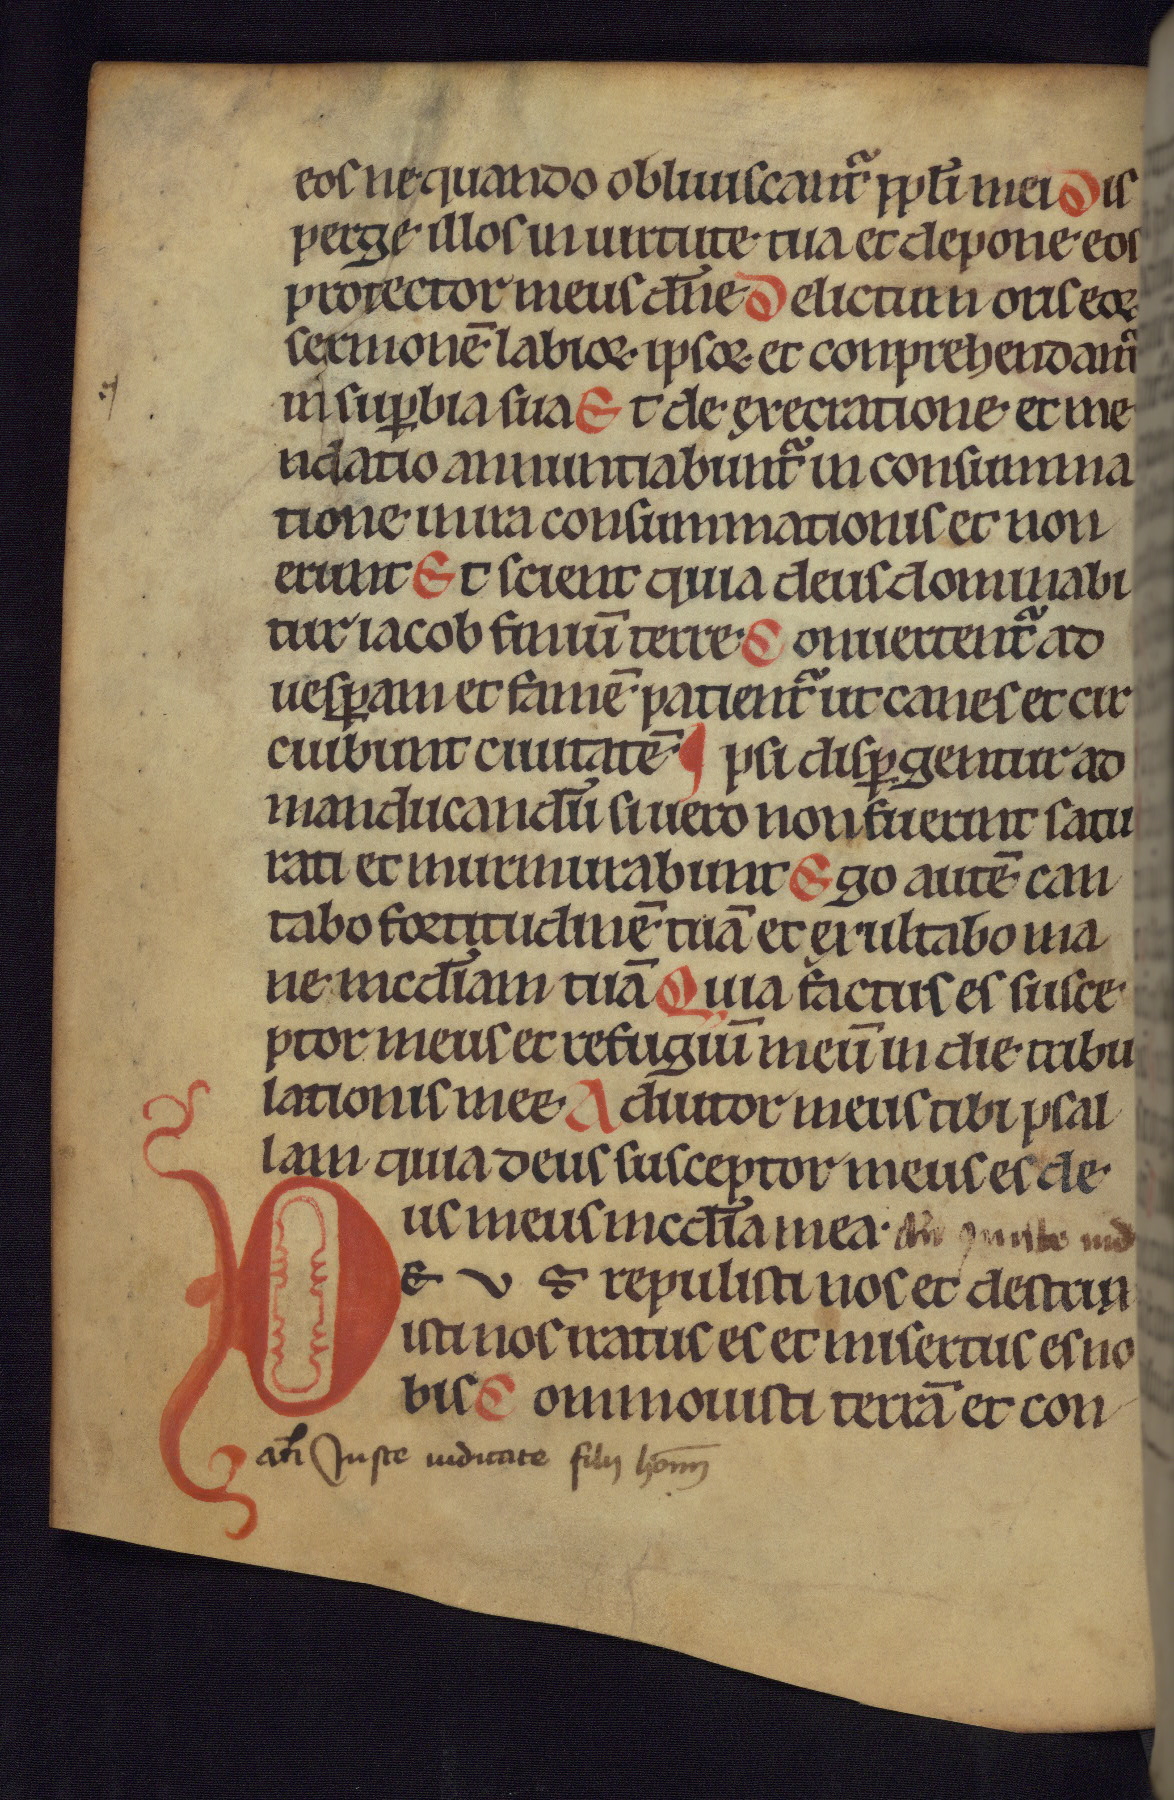 eos nequando obliuiscant᷑ pp̄li mei Dis
perge illos in uirtute tua et depone eos
protector meus dn̄e Delictum oris eoꝝ
sermonē labioꝝ ipsoꝝ et conprehendant᷑
in suꝑbia sua Et de execratione et me
ndatio annuntiabunt᷑ in consumma
tione in ira consummationis et non
erunt Et scient quia deus dominabi
tur iacob finiū terre Conuertent᷑ ad
uesꝑam et famē patient᷑ ut canes et cir
cuibunt ciuitatē Ipsi disꝑgentur ad
manducandū si uero non fuerint satu
rati et murmurabunt Ego autē can
tabo fortitudinē tuā et exultabo ma
ne mcd̄iam tuā Quia factus es susce
ptor meus et refugiū meū in die tribu
lationis mee Adiutor meus tibi psal
lam quia deus susceptor meus es de
us meus mcd̄ia mea
DEUS repulisti nos et destrux
isti nos iratus es et misertus es no
bis Commouisti terrā et con
an̄ Juste iudicate filij hom̄